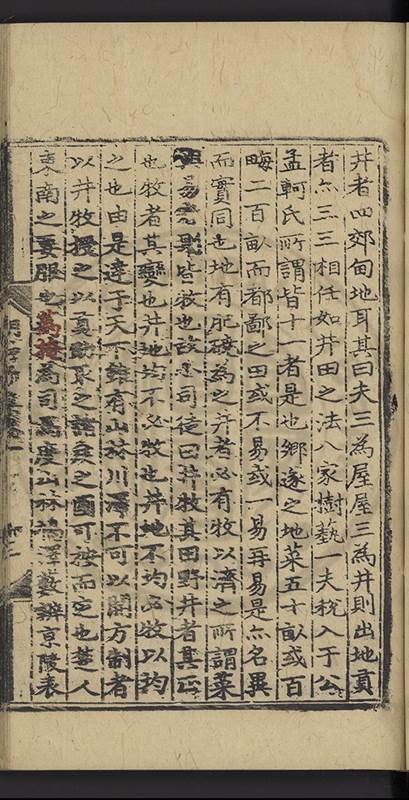 井者四郊甸地耳其曰夫三為屋屋三為井則出地貢
者亦三三相任如井田之法八家樹藝一夫稅入于公
孟軻氏所謂皆十一者是也鄉遂之地萊五十畝或百
畮二百畝而都鄙之田或不易或一易再易是亦名異
而實同也地有肥磽為之井者必有牧以濟之所謂萊
與易皆牧也故小司徒曰井牧其田野井者其正
也牧者其變也井地均不必牧也井地不均必牧以均
之也由是達于天下雖有山林川澤不可以開方制者
以井牧授之以貢助取之諸侯之國可按而定也楚人
東南之要服也蒍掩為司馬度山林鳩澤藪辨京陵表